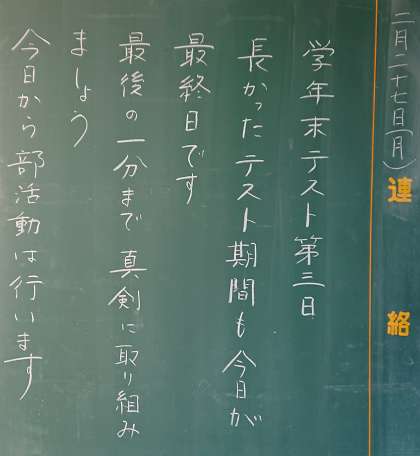 二月二十七日(月)
連絡
学年末テスト第三日
長かったテスト期間も今日が
最終日です
最後の一分まで真剣に取り組み
ましょう
今日から部活動は行います